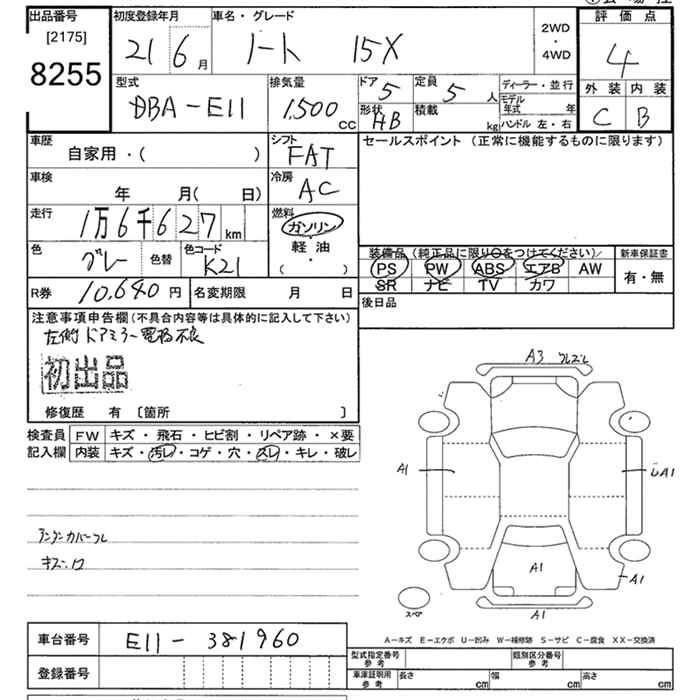 出品番号
[2175]
8255
初度登録年月
21 6月
車名・グレード
ノート 15X
2WD
・
4WD
評価点
4
外装 内装
C B
型式
DBA-E11
排気量
1,500cc
ドア 5
定員 5人
形状 HB
積載 kg
ディーラー・並行
モデル年式 年
ハンドル 左・右
車歴
自家用・( )
シフト
FAT
セールスポイント (正常に機能するものに限ります)
車検
年 月( 日)
冷房
AC
走行
1万6千627km
燃料
ガソリン
軽油
( ・ )
色
グレー
色替
色コード
K21
装備品(純正品に限り○をつけてください)
新車保証書
PS PW ABS エアB AW
SR ナビ TV カワ
有・無
R券 10,640円
名変期限 月 日
後日品
注意事項申告欄(不具合内容等は具体的に記入して下さい)
左側ドアミラー電格不良
初出品
修復歴 有 [箇所 ]
検査員
記入欄
FW キズ・飛石・ヒビ割・リペア跡・×要
内装 キズ・汚レ・コゲ・穴・スレ・キレ・破レ
アンダーカバーズレ
キズ・ワ
A3
A1
A1
A1
A1
A1
スペア
A-キズ E-エクボ U-凹み W-補修跡 S-サビ C-腐食 XX-交換済
車台番号
E11-381960
登録番号
型式指定番号
参考
類別区分番号
参考
車庫証明用
参考
長さ cm
幅 cm
高さ cm